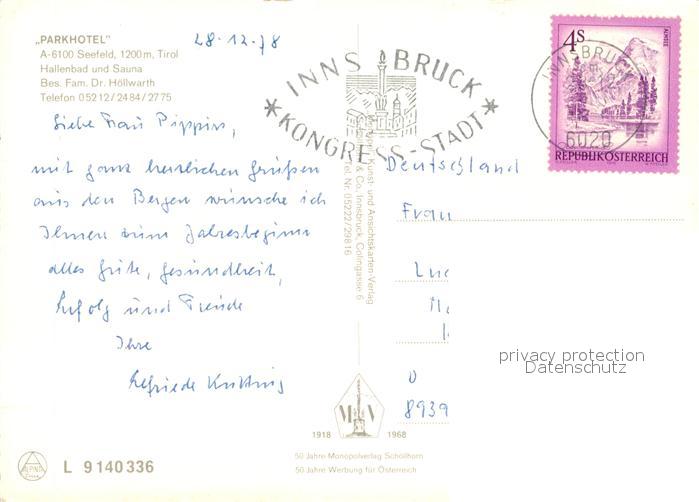 „PARKHOTEL"
A-6100 Seefeld, 1200 m, Tirol
Hallenbad und Sauna
Bes. Fam. Dr. Höllwarth
Telefon 05212/2484/2775
28.12.78
Liebe Frau Pippirs,
mit ganz herzlichen Grüßen
aus den Bergen wünsche ich
Ihnen zum Jahresbeginn
alles Gute, Gesundheit,
Erfolg und Freude
Ihre
Elfriede
INNSBRUCK
*KONGRESS-STADT*
INNSBRUCK
6020
4S
ALMSEE
REPUBLIK ÖSTERREICH
Kunst- und Ansichtskarten-Verlag
& Co. Innsbruck, Colingasse 6
Tel. Nr. 05222/29816
Deutschland
Frau
D
8939
privacy protection
Datenschutz
M V
1918 1968
50 Jahre Monopolverlag Schöllhorn
50 Jahre Werbung für Österreich
ALPINE
L 9140336